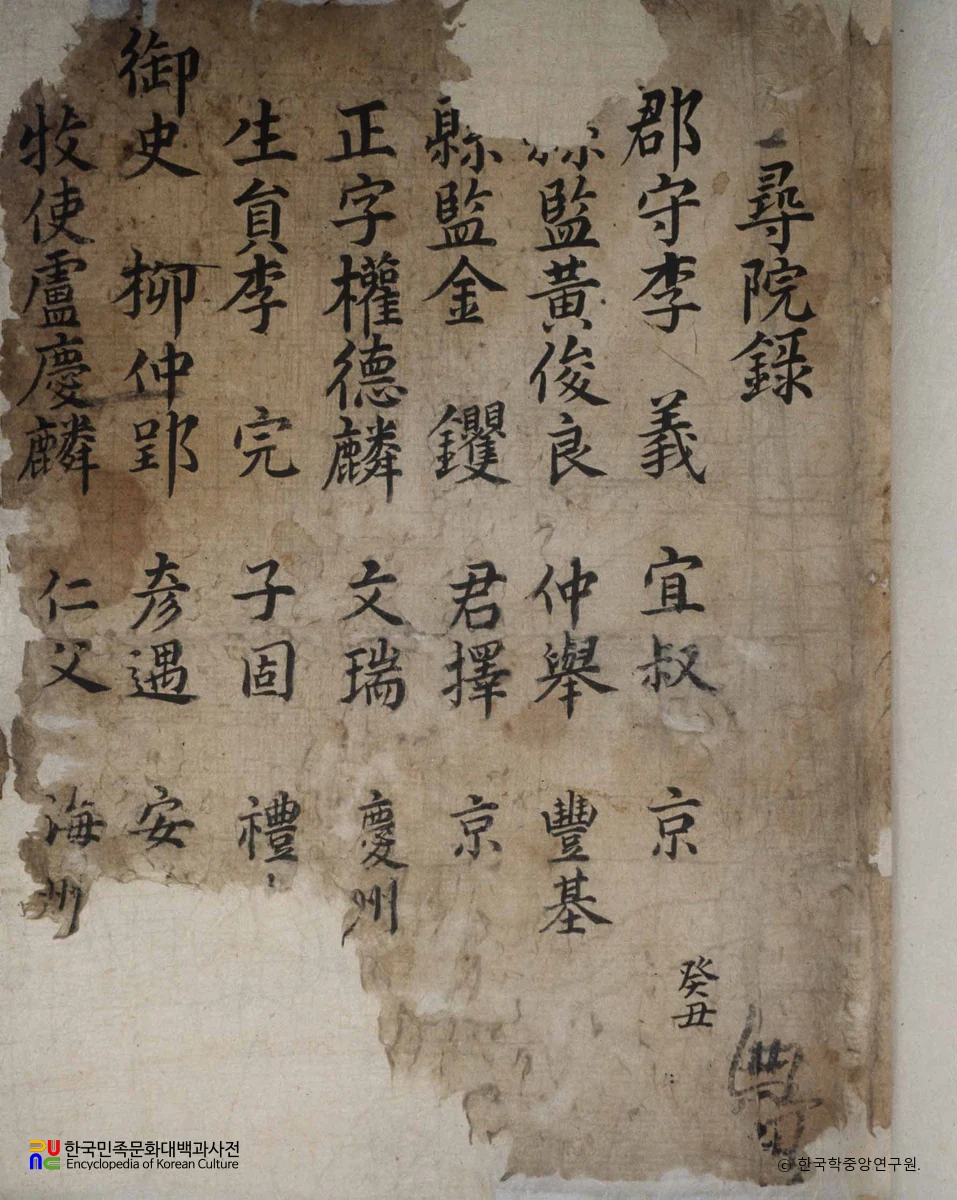 尋院錄
郡守李 義 宜叔 京 癸丑
監黃俊良 仲擧 豐基
縣監金 鑺 君擇 京
正字權德麟 文瑞 慶州
生員李 完 子固 禮
御史 柳仲郢 彥遇 安
牧使盧慶麟 仁父 海州
한국민족문화대백과사전
Encyclopedia of Korean Culture
ⓒ 한국학중앙연구원.